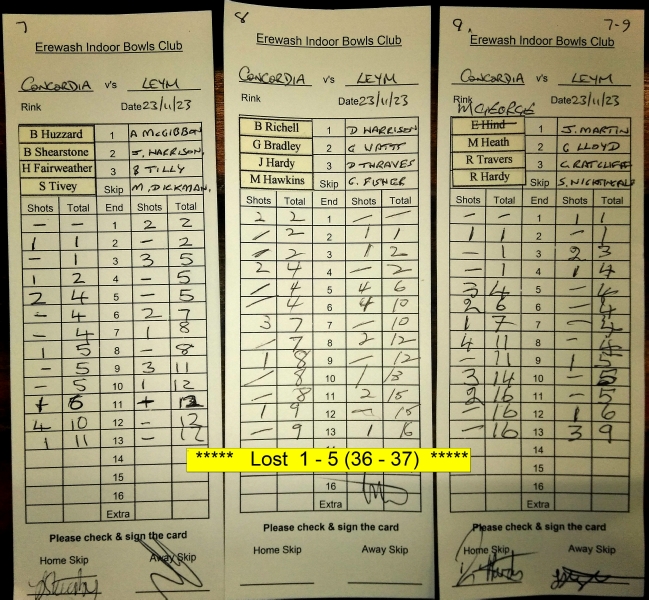 7
Erewash Indoor Bowls Club
CONCORDIA v's LEYM
Rink Date 23/11/23
B Huzzard 1 A McGIBBON
B Shearstone 2 J. HARRISON.
H Fairweather 3 B TILLY
S Tivey Skip M. DICKMAN.
Shots Total End Shots Total
– – 1 2 2
1 1 2 – 2
– 1 3 3 5
1 2 4 – 5
2 4 5 – 5
– 4 6 2 7
– 4 7 1 8
1 5 8 – 8
– 5 9 3 11
– 5 10 1 12
6 11
4 10 12 –
1 11 13 – 12
14
15
16
Extra
Please check & sign the card
Home Skip Away Skip
8
Erewash Indoor Bowls Club
CONCORDIA v's LEYM
Rink Date 23/11/23
B Richell 1 D HARRISON
G Bradley 2 G VATTS
J Hardy 3 D THRAVES
M Hawkins Skip G. FISHER
Shots Total End Shots Total
2 2 1 – –
– 2 2 1 1
– 2 3 1 2
2 4 4 – 2
– 4 5 4 6
– 4 6 4 10
3 7 7 – 10
– 7 8 2 12
1 8 9 – 12
– 8 10 1 13
– 8 11 2 15
1 9 12 – 15
– 9 13 1 16
16
Extra
Please check & sign the card
Home Skip Away Skip
9. 7-9
Erewash Indoor Bowls Club
CONCORDIA v's LEYM
Rink Date 23/11/23
M GEORGE
E Hind 1 J. MARTIN
M Heath 2 G LLOYD
R Travers 3 C. RATCLIFFE
R Hardy Skip
Shots Total End Shots Total
– – 1 1 1
1 1 2 – 1
– 1 3 2 3
– 1 4 1 4
3 4 5 – 4
2 6 6 – 4
1 7 7 – 4
4 11 8 – 4
– 11 9 1 5
3 14 10 – 5
2 16 11 – 5
– 16 12 1 6
– 16 13 3 9
14
15
16
Extra
Please check & sign the card
Home Skip Away Skip
***** Lost 1 - 5 (36 - 37) *****